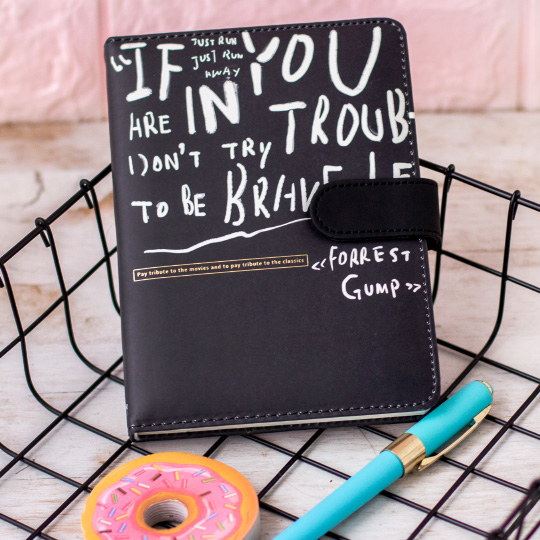 JUST RUN
JUST RUN
AWAY
“IF YOU
ARE IN TROUB-
DON'T TRY
TO BE BRAVE
Pay tribute to the movies and to pay tribute to the classics
<<FORREST
GUMP>>